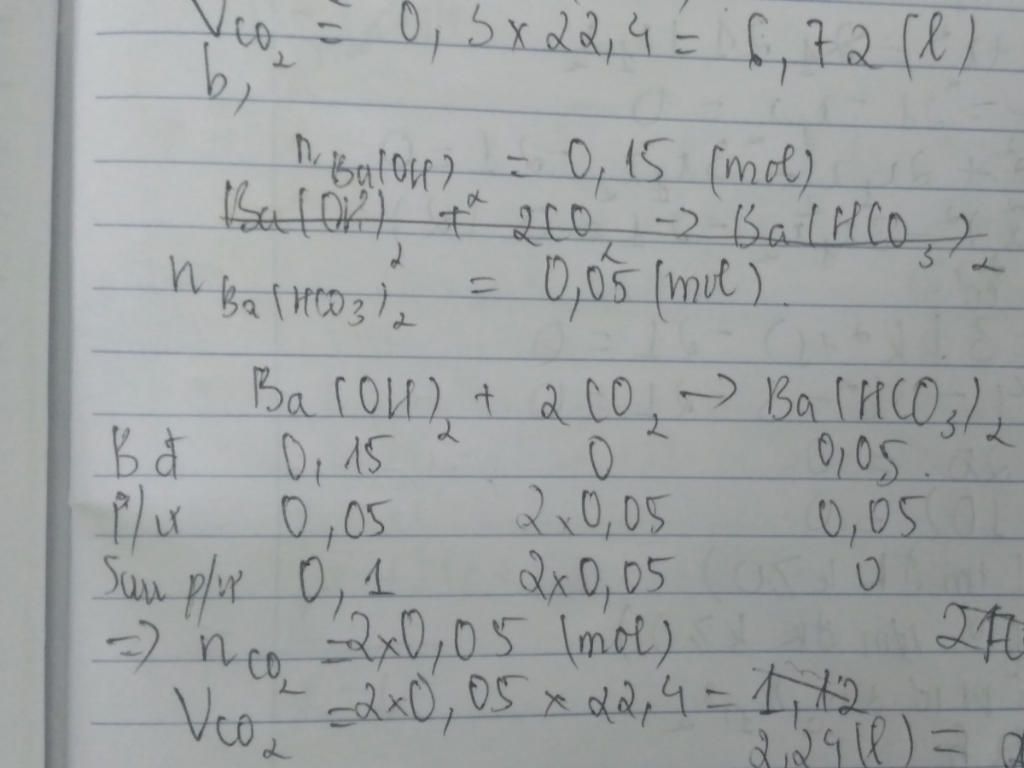 V CO₂ = 0,3 x 22,4 = 6,72 (l)
b,
n Ba(OH)₂ = 0,15 (mol)
Ba(OH)₂ + 2CO₂ → Ba(HCO₃)₂
n Ba(HCO₃)₂ = 0,05 (mol).
Ba(OH)₂ + 2CO₂ → Ba(HCO₃)₂
Bđ 0,15 0 0,05.
P/ư 0,05 2x0,05 0,05
Sau p/ư 0,1 2x0,05 0
=> n CO₂ = 2x0,05 (mol)
V CO₂ = 2x0,05 x 22,4 = 1,12
2,24 (l) =